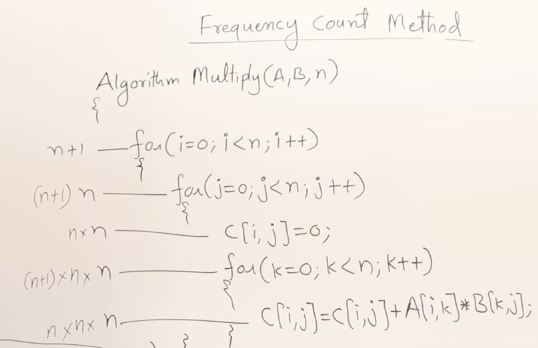 Frequency Count Method
Algorithm Multiply(A,B,n)
{
n+1 for(i=0; i<n; i++)
{
(n+1) n for(j=0; j<n; j++)
{
n×n C[i,j]=0;
(n+1)×n×n for(k=0; k<n; k++)
{
n×n×n C[i,j]=C[i,j]+A[i,k]*B[k,j];
} } }